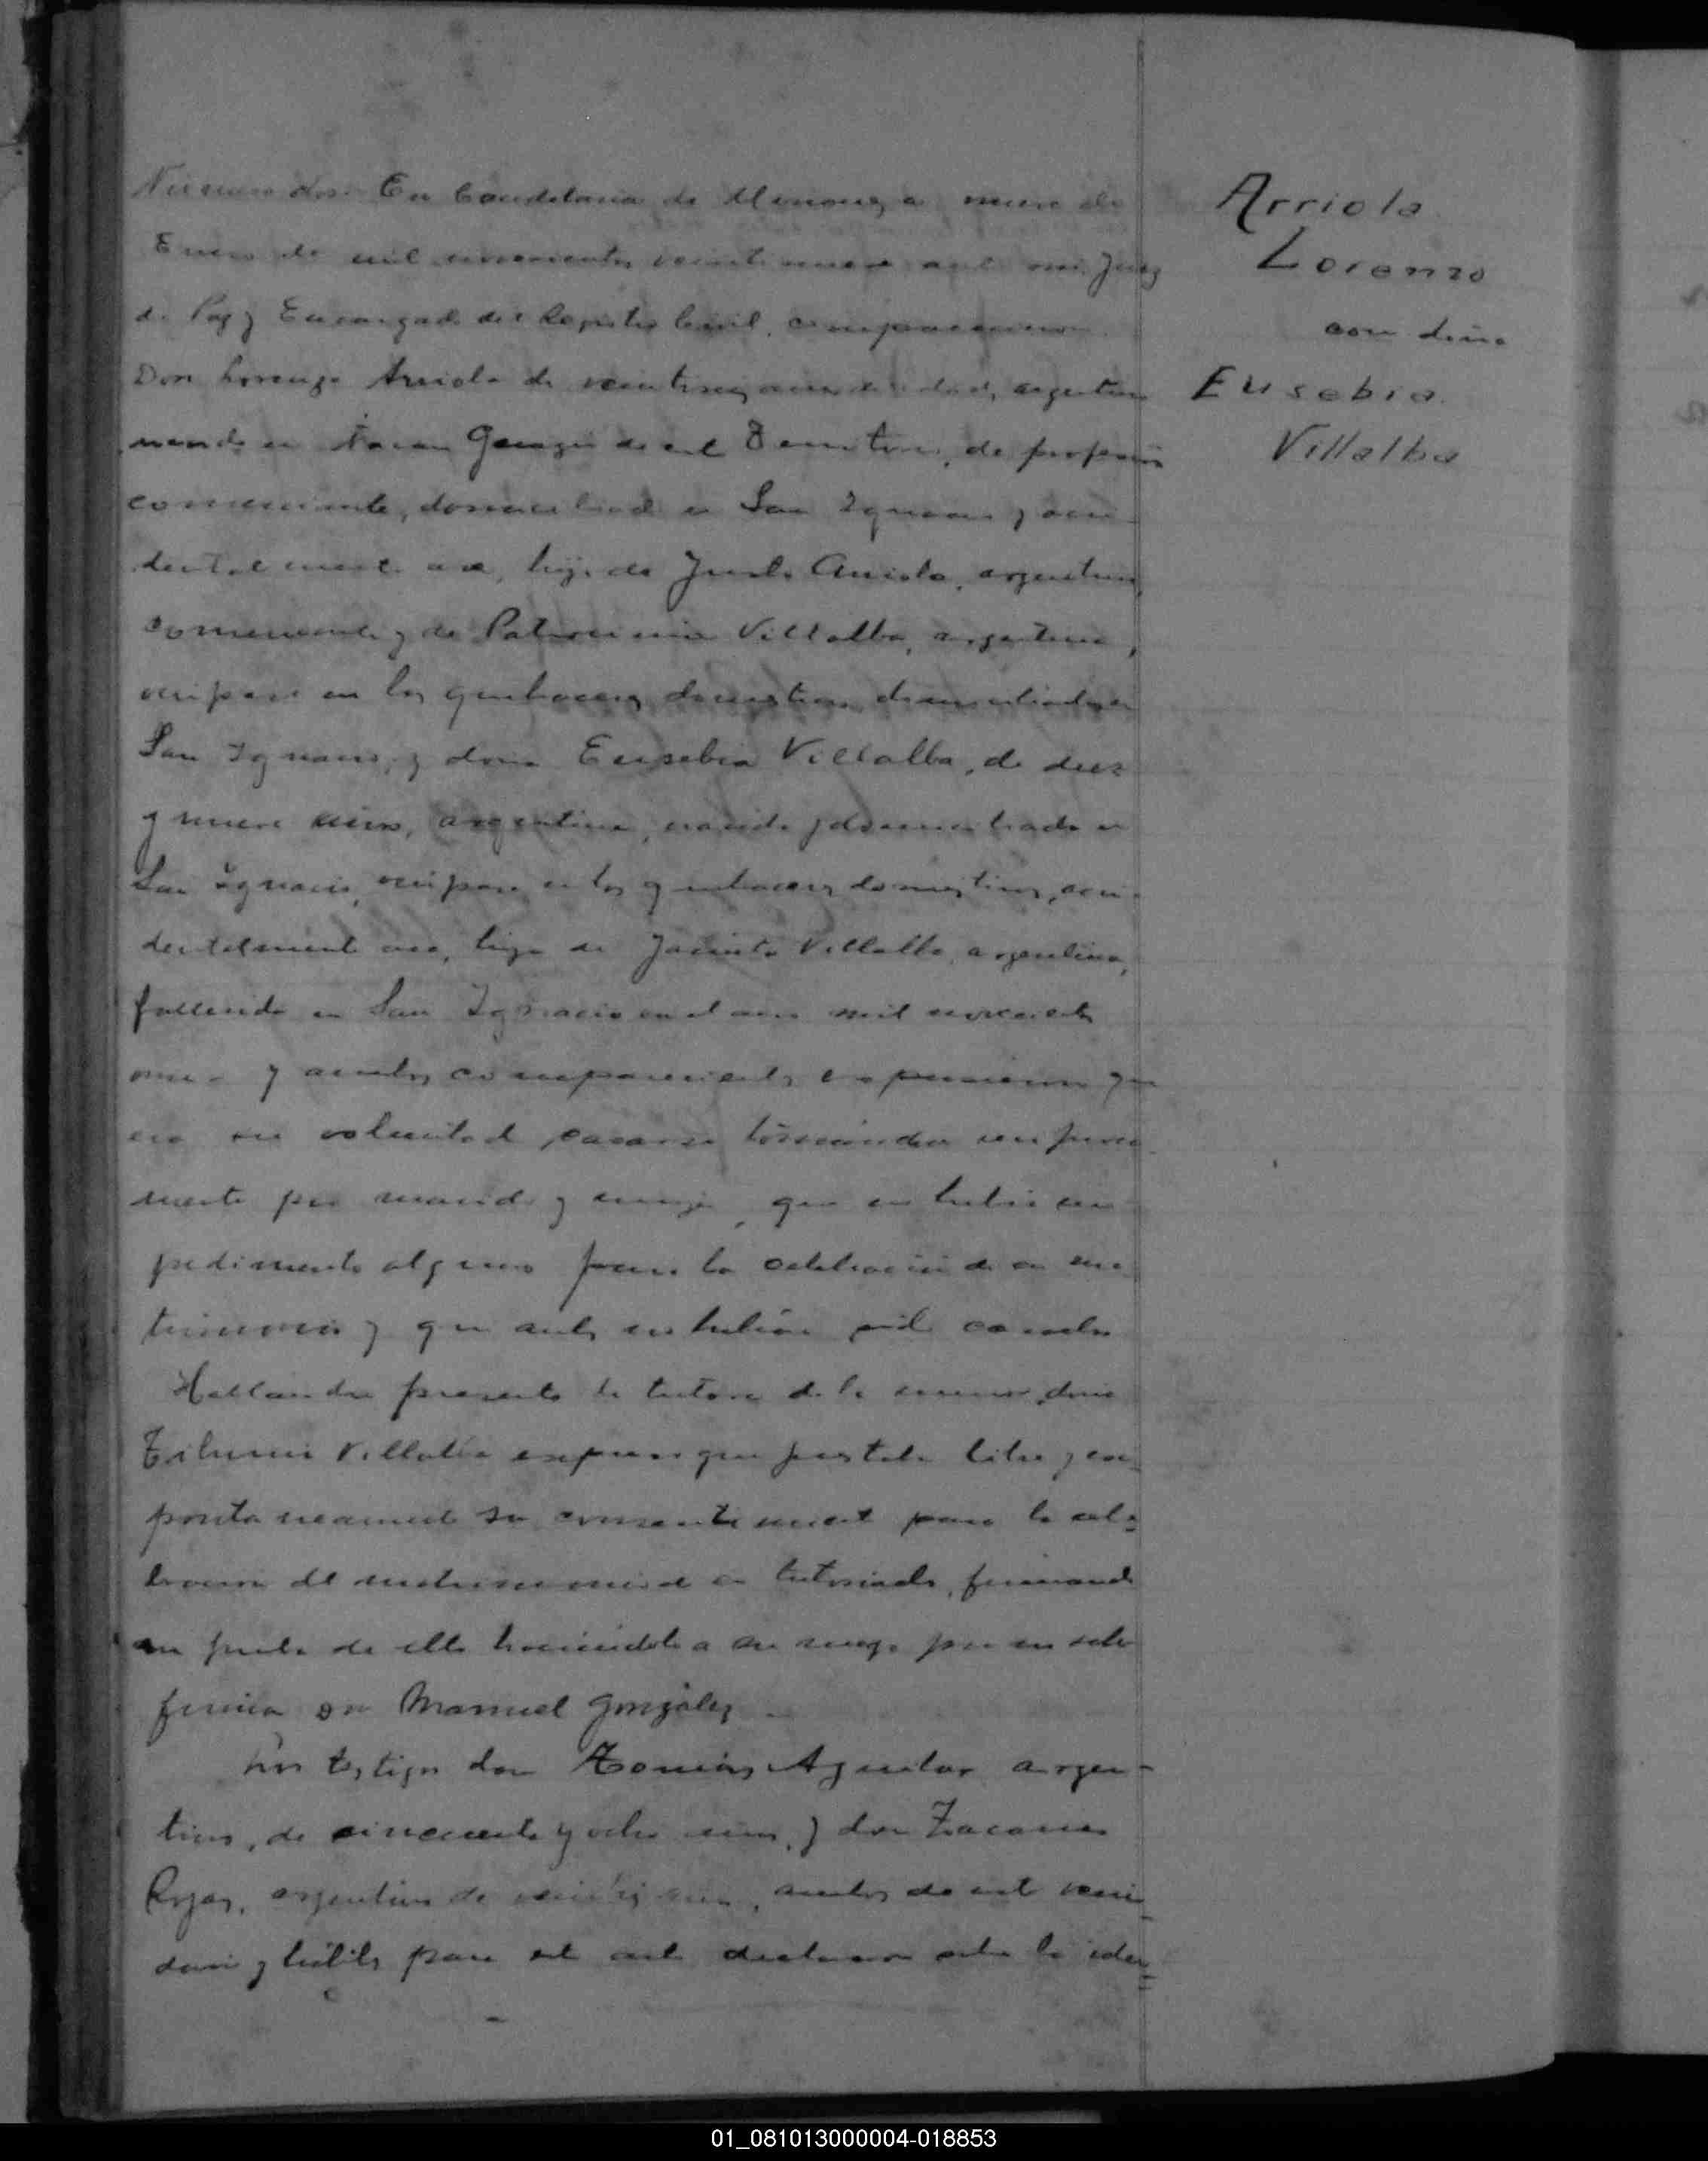 Número dos. En Candelaria de Misiones a nueve de
Enero de mil novecientos veintinueve ante mi Juez
de Paz y Encargado del Registro Civil, comparecieron
Don Lorenzo Arriola de veintiseis años de edad, argentino
nacido en de este Territorio, de profesión
comerciante, domiciliado en San Ignacio y acci-
dentalmente acá, hijo de Justo Arriola, argentino,
comerciante y de Patrocinia Villalba, argentina,
ocupase en los quehaceres domesticos domiciliados en
San Ignacio, y doña Eusebia Villalba, de diez
y nueve años, argentina, nacida y domiciliada en
San Ignacio, ocupase en los quehaceres domesticos, acci-
dentalmente acá, hija de Jacinta Villalba, argentina,
fallecida en San Ignacio en el año mil novecientos
once y ambos comparecientes expusieron que
era su voluntad casarse tomándose
mente por marido y mujer, que no había im-
pedimento alguno para la celebración de su ma-
trimonio y que antes no habían sido casados
Hallandose presente la tutora de la menor, doña
Villalba expuso que prestaba libre y es-
pontaneamente su consentimiento para la cele-
bración del matrimonio de su tutoriada, firmando
en prueba de ello haciendolo a su ruego por no saber
firmar Dn Manuel González
Los testigos don Tomás Aguilar argen-
tino, de cincuenta y ocho años, y don Zacarías
Rojas, argentino de años, ambos de este vecin-
dario y hábiles para el acto declararon sobre la iden-
Arriola
Lorenzo
con doña
Eusebia
Villalba
01_081013000004-018853